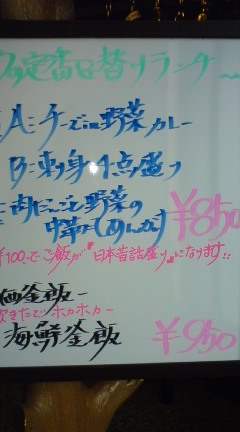 の定番日替りランチ
A=チーズin野菜カレー
B=刺身4点盛り
C=肉だんごと野菜の
中華あんかけ
¥850
¥100でご飯が『日本昔話盛り』になります!!
釜飯
炊きたてホカホカ
海鮮釜飯 ¥950